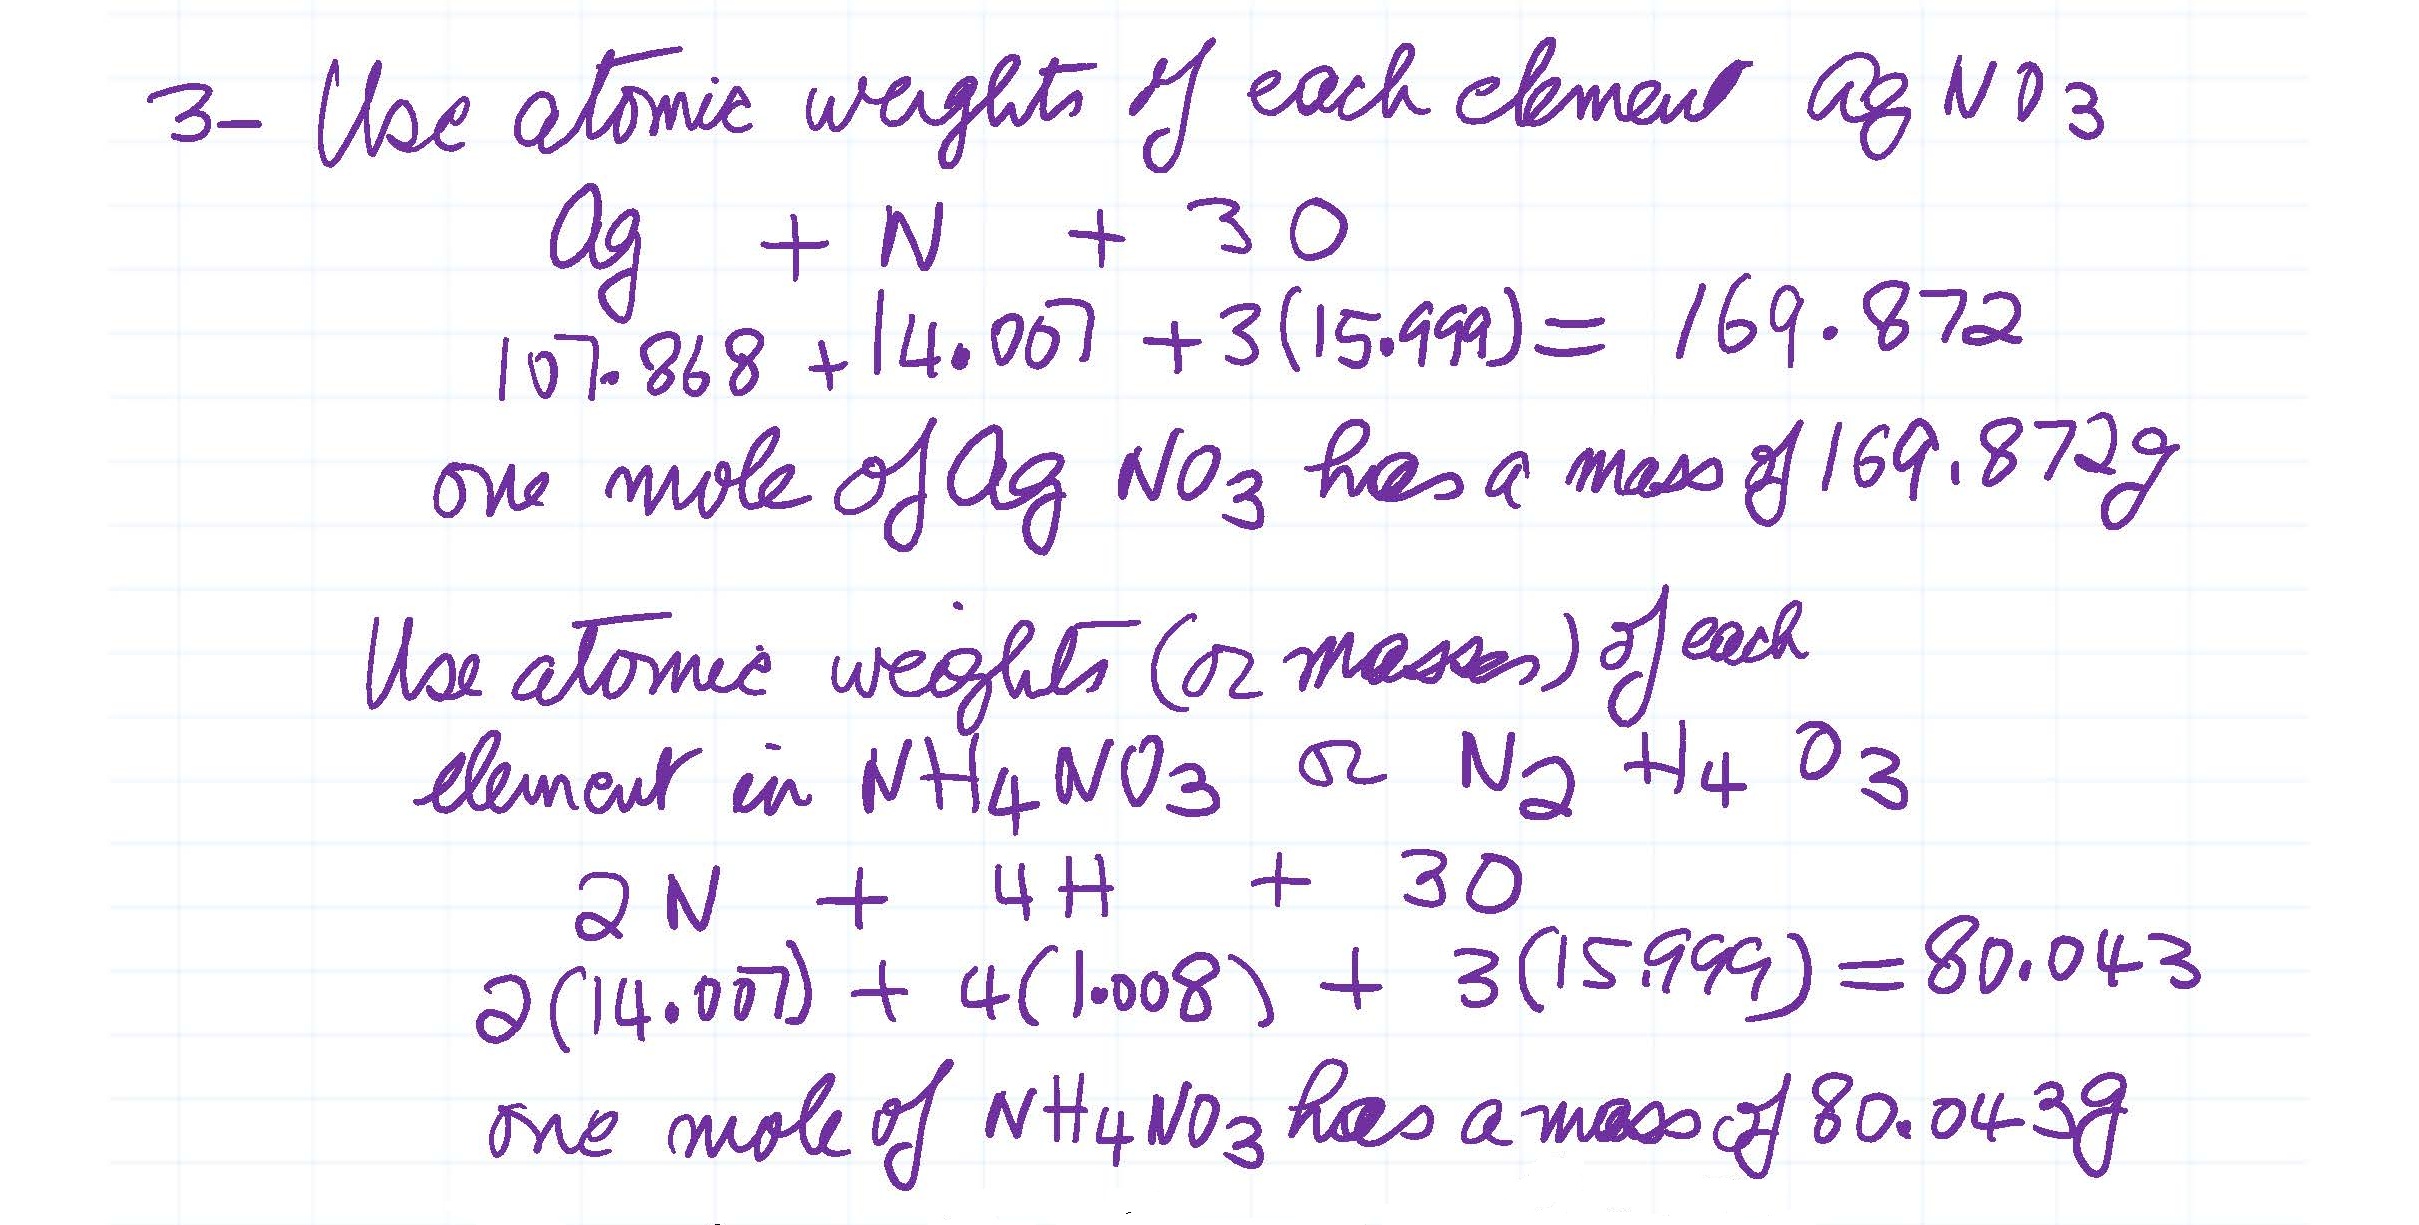 3- Use atomic weights of each element AgNO3
Ag + N + 3O
107.868 + 14.007 + 3(15.999) = 169.872
one mole of AgNO3 has a mass of 169.872g
Use atomic weights (or masses) of each
element in NH4NO3 or N2H4O3
2N + 4H + 3O
2(14.007) + 4(1.008) + 3(15.999) = 80.043
one mole of NH4NO3 has a mass of 80.043g